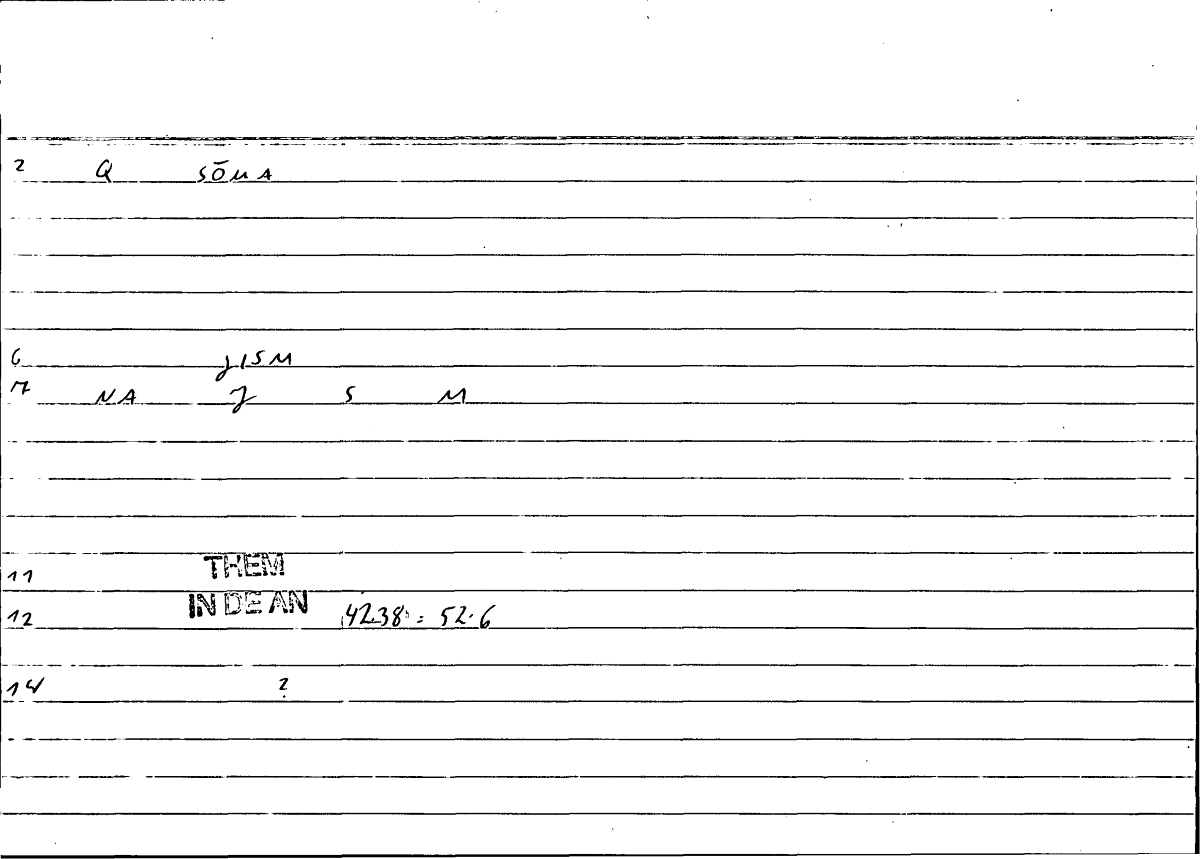 2 Q SŌMA
6 JISM
7 NA J S M
11 THEM
12 IN DE AN 4238 = 52.6
14 ?